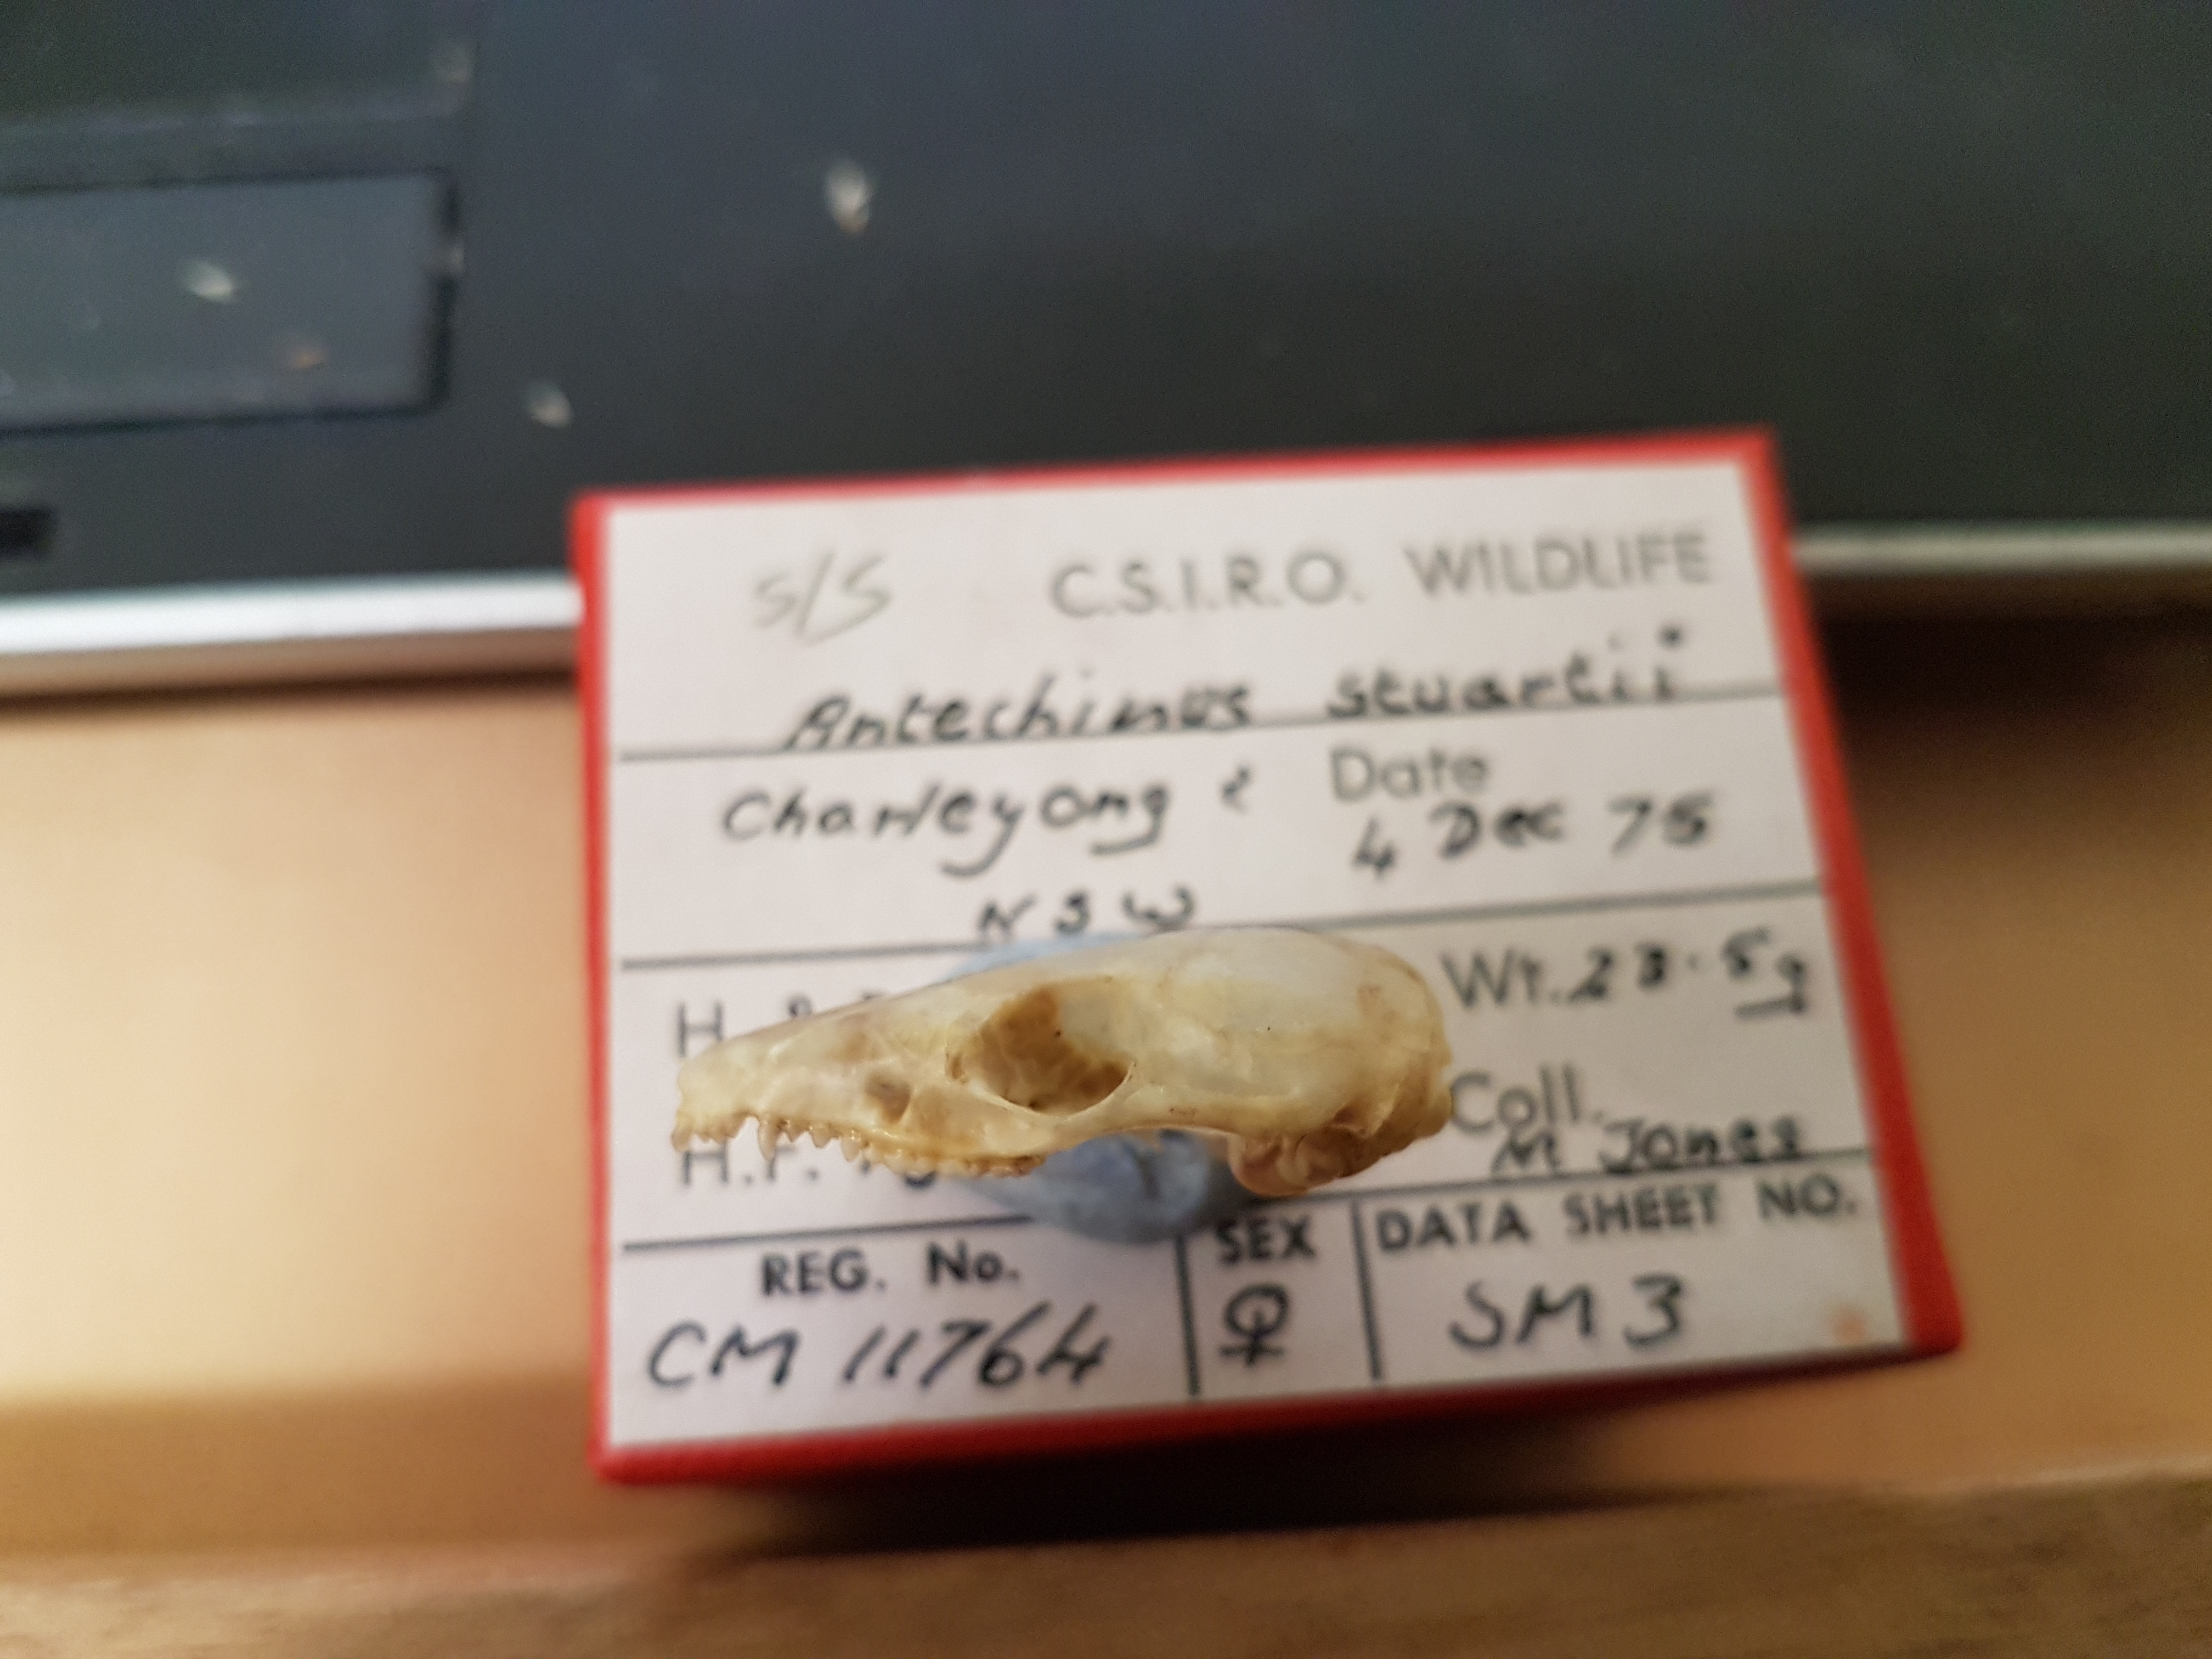 S/S C.S.I.R.O. WILDLIFE
Antechinus stuartii
Charleyong Date
NSW 4 Dec 75
H. & Wt. 23.5g
Coll.
H.F. M Jones
REG. No. SEX DATA SHEET NO.
CM 11764 ♀ SM 3